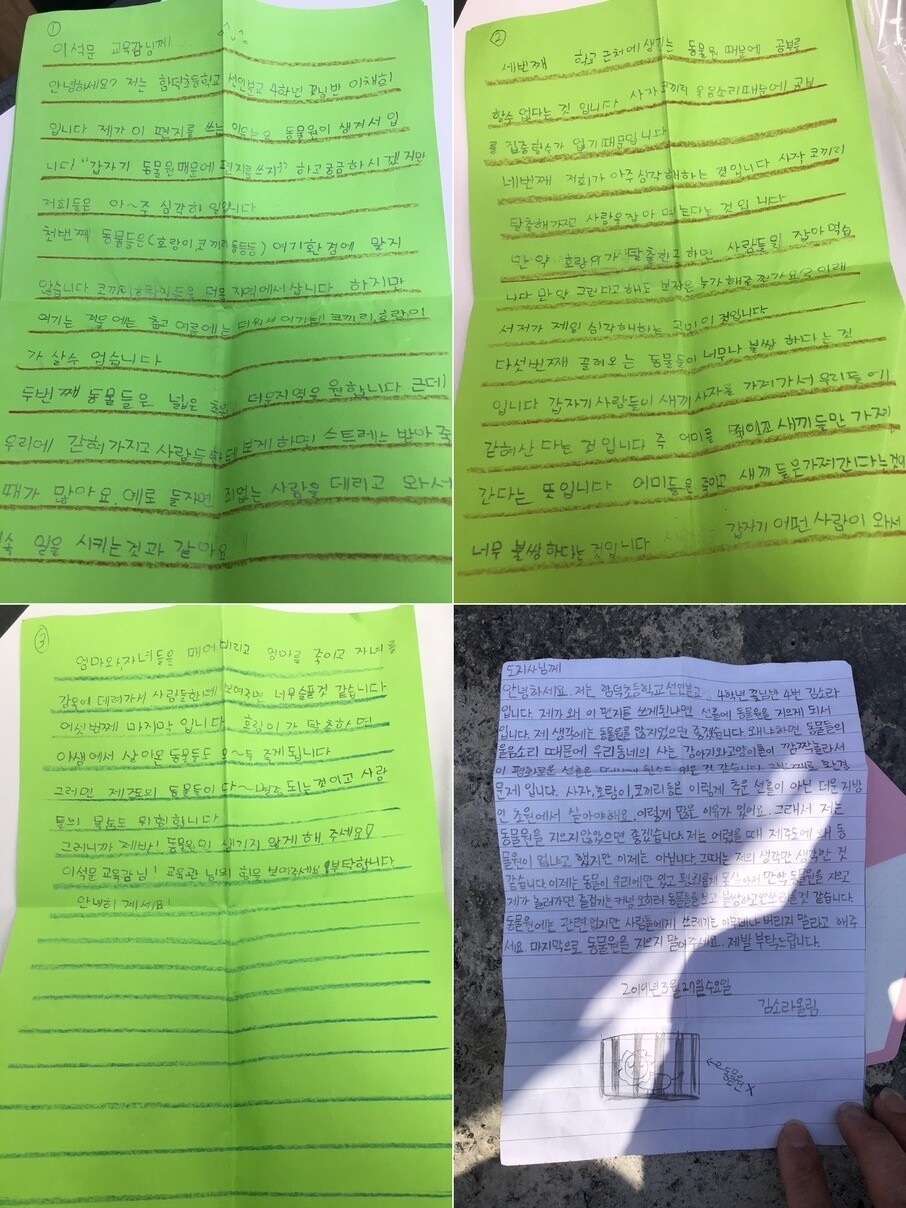 ①
이석문 교육감님께...
안녕하세요? 저는 함덕초등학교 선인분교 4학년 꽃님반 이채희
입니다 제가 이 편지를 쓰는 이유는요 동물원이 생겨서 입
니다 "갑자기 동물원때문에 편지를쓰지?" 하고궁금하시겠지만
저희들은 아~주 심각하 일입니다
첫번째 동물들은(호랑이코끼리등등등) 여기환경에 맞지
않습니다 코끼리호랑이들은 더운 지역에서삽니다 하지만
여기는 겨울에는 춥고 여름에는 더워서 여기는 코끼리,호랑이
가 살수 없습니다
두번째 동물들은 넓은 더운지역을 원합니다 근데
우리에 갇혀가지고 사람들한테 보게하면 스트레스 받아 죽
때가 많아요. 예로 들자면 죄없는 사람을 데리고 와서
속 일을 시키는것과 같아요
②
세번째 학교 근처에 생기는 동물원 때문에 공부를
할수 없다는 것 입니다 사자 코끼리 울음소리때문에 공부
를 집중할수가 없기 때문입니다
네번째 저희가 아주심각해하는 것입니다 사자 코끼리
탈출해가지고 사람을 잡아 먹는다는 것입니다
만약 호랑이가 탈출한고하면 사람들일 잡아먹습
니다 만약 그런다고 해도 보장은 누가해줄건가요? 이래
서저가 제일 심각해하는 이것입니다
다섯번째 끌려오는 동물들이 너무나 불쌍 하다는 것
입니다 갑자기 사람들이 새끼 사자를 가져가서 우리들에
갇혀산 다는 것입니다 즉 어미를 죽이고 새끼들만 가져
간다는 뜻입니다 어미들은 죽이고 새끼들은가져간다는것이
너무 불쌍하다는것입니다 갑자기 어떤 사람이 와서
③
엄마와,자녀들을 떼어버리고 엄마를 죽이고 자녀를
감옥에 데려가서 사람들한테 보여주면 너무슬플것 같습니다
여섯번째 마지막 입니다 호랑이가 탈출하면
야생에서 살아온 동물들도 모~두 죽게됩니다
그러면 제주도의 동물들이 다~멸종 되는것이고 사람
들의 목숨도 위험합니다
그러니까 제발! 동물원이 생기지 않게 해 주세요!
이석문 교육감님! 교육감 님의 힘을 보여주세요!부탁합니다
안녕히 계세요!
도지사님께
안녕하세요. 저는 함덕초등학교선인분교 4학년 꽃님반 4번 김소라
입니다. 제가 왜 이 편지를 쓰게된냐면 선흘에 동물원을 지으게 되서
입니다. 제 생각에는 동물원을 않지었으면 좋겠습니다. 왜냐하면 동물들의
울음소리 때문에 우리동네의 사는 강아지와고양이들이 깜짝놀라서
이 평화로운 선흘은 것 같습니다. 환경
문제 입니다. 사자,호랑이,코끼리등은 이렇게 추운 선흘이 아닌 더운 지방
인 초원에서 살아야해요. 이렇게 많은 이유가 있어요. 그래서 저는
동물원을 지으지않았으면 좋겠습니다. 저는 어렸을때 제주도에 왜 동
물원이 없냐고 했지만 이제는 아닙니다. 그때는 저의 생각만 생각한 것
같습니다. 이제는 동물이 우리에만 있고 못살아서 만약 동물원을 지으고
제가 놀러가면 즐겁기는 커녕 오히려 동물들을보고 불쌍하고 것 같습니다.
동물원에는 관련 없지만 사람들에게 쓰레기는 아무데나 버리지 말라고 해주
세요 마지막으로 동물원을 지으지 말아주세요.. 제발 부탁드립니다.
2019년 3월 27일 수요일
김소라올림
동물원 X